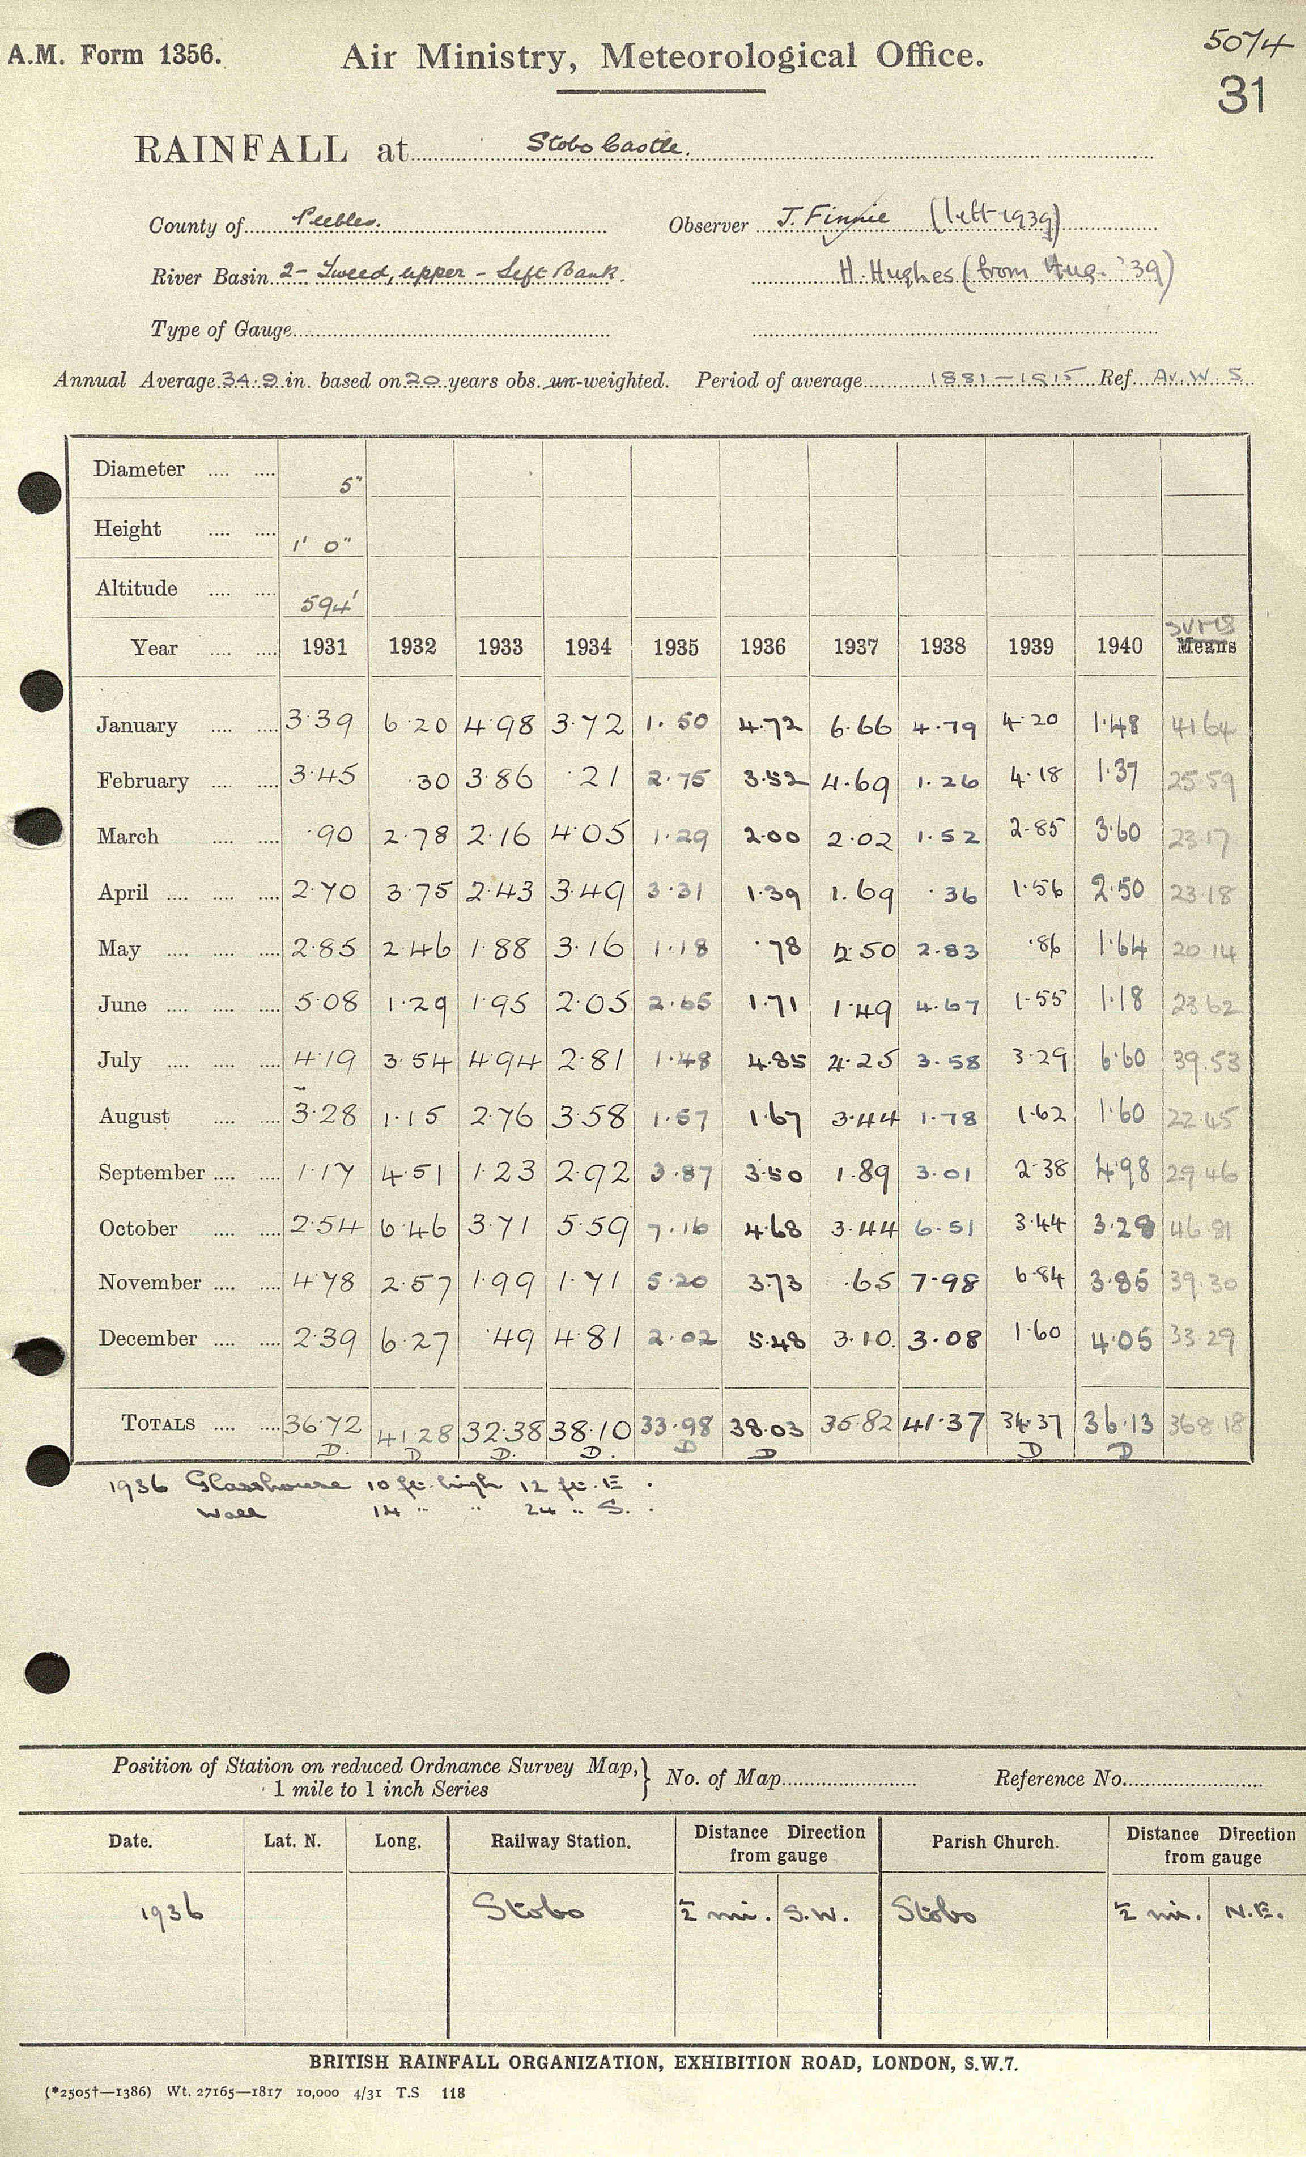 5074
A.M. Form 1356. Air Ministry, Meteorological Office.
31
RAINFALL at Stobo Castle.
County of Peebles. Observer J. Finnie (left 1939)
River Basin 2- Tweed, upper - Left Bank. H. Hughes (from Aug. '39)
Type of Gauge
Annual Average 34.9 in. based on 20 years obs. un-weighted. Period of average 1881-1915 Ref. Av. W. S
Diameter .... .... 5"
Height .... .... 1' 0"
Altitude .... .... 594'
sums
Year .... .... 1931 1932 1933 1934 1935 1936 1937 1938 1939 1940 Means
January .... .... 3.39 6.20 4.98 3.72 1.50 4.72 6.66 4.79 4.20 1.48 41.64
February .... .... 3.45 .30 3.86 .21 2.75 3.52 4.69 1.26 4.18 1.37 25.59
March .... .... .90 2.78 2.16 4.05 1.29 2.00 2.02 1.52 2.85 3.60 23.17
April .... .... .... 2.70 3.75 2.43 3.49 3.31 1.39 1.69 .36 1.56 2.50 23.18
May .... .... .... 2.85 2.46 1.88 3.16 1.18 .78 2.50 2.83 .86 1.64 20.14
June .... .... .... 5.08 1.29 1.95 2.05 2.65 1.71 1.49 4.67 1.55 1.18 23.62
July .... .... .... 4.19 3.54 4.94 2.81 1.48 4.85 4.25 3.58 3.29 6.60 39.53
August .... .... 3.28 1.15 2.76 3.58 1.57 1.67 3.44 1.78 1.62 1.60 22.45
September .... .... 1.17 4.51 1.23 2.92 3.87 3.50 1.89 3.01 2.38 4.98 29.46
October .... .... 2.54 6.46 3.71 5.59 7.16 4.68 3.44 6.51 3.44 3.28 46.81
November .... .... 4.78 2.57 1.99 1.71 5.20 3.73 .65 7.98 6.84 3.85 39.30
December .... .... 2.39 6.27 .49 4.81 2.02 5.48 3.10 3.08 1.60 4.05 33.29
TOTALS .... .... 36.72 41.28 32.38 38.10 33.98 38.03 35.82 41.37 34.37 36.13 368.18
D. D D. D. D D D D
1936 Glasshouse 10 ft. high 12 ft. E.
Wall 14 " " 24 " S.
Position of Station on reduced Ordnance Survey Map, } No. of Map Reference No.
1 mile to 1 inch Series
Date. Lat. N. Long. Railway Station. Distance Direction from gauge Parish Church. Distance Direction from gauge
1936 Stobo ½ mi. S.W. Stobo ½ mi. N.E.
BRITISH RAINFALL ORGANIZATION, EXHIBITION ROAD, LONDON, S.W.7.
(*2505†—1386) Wt. 27165—1817 10,000 4/31 T.S 118